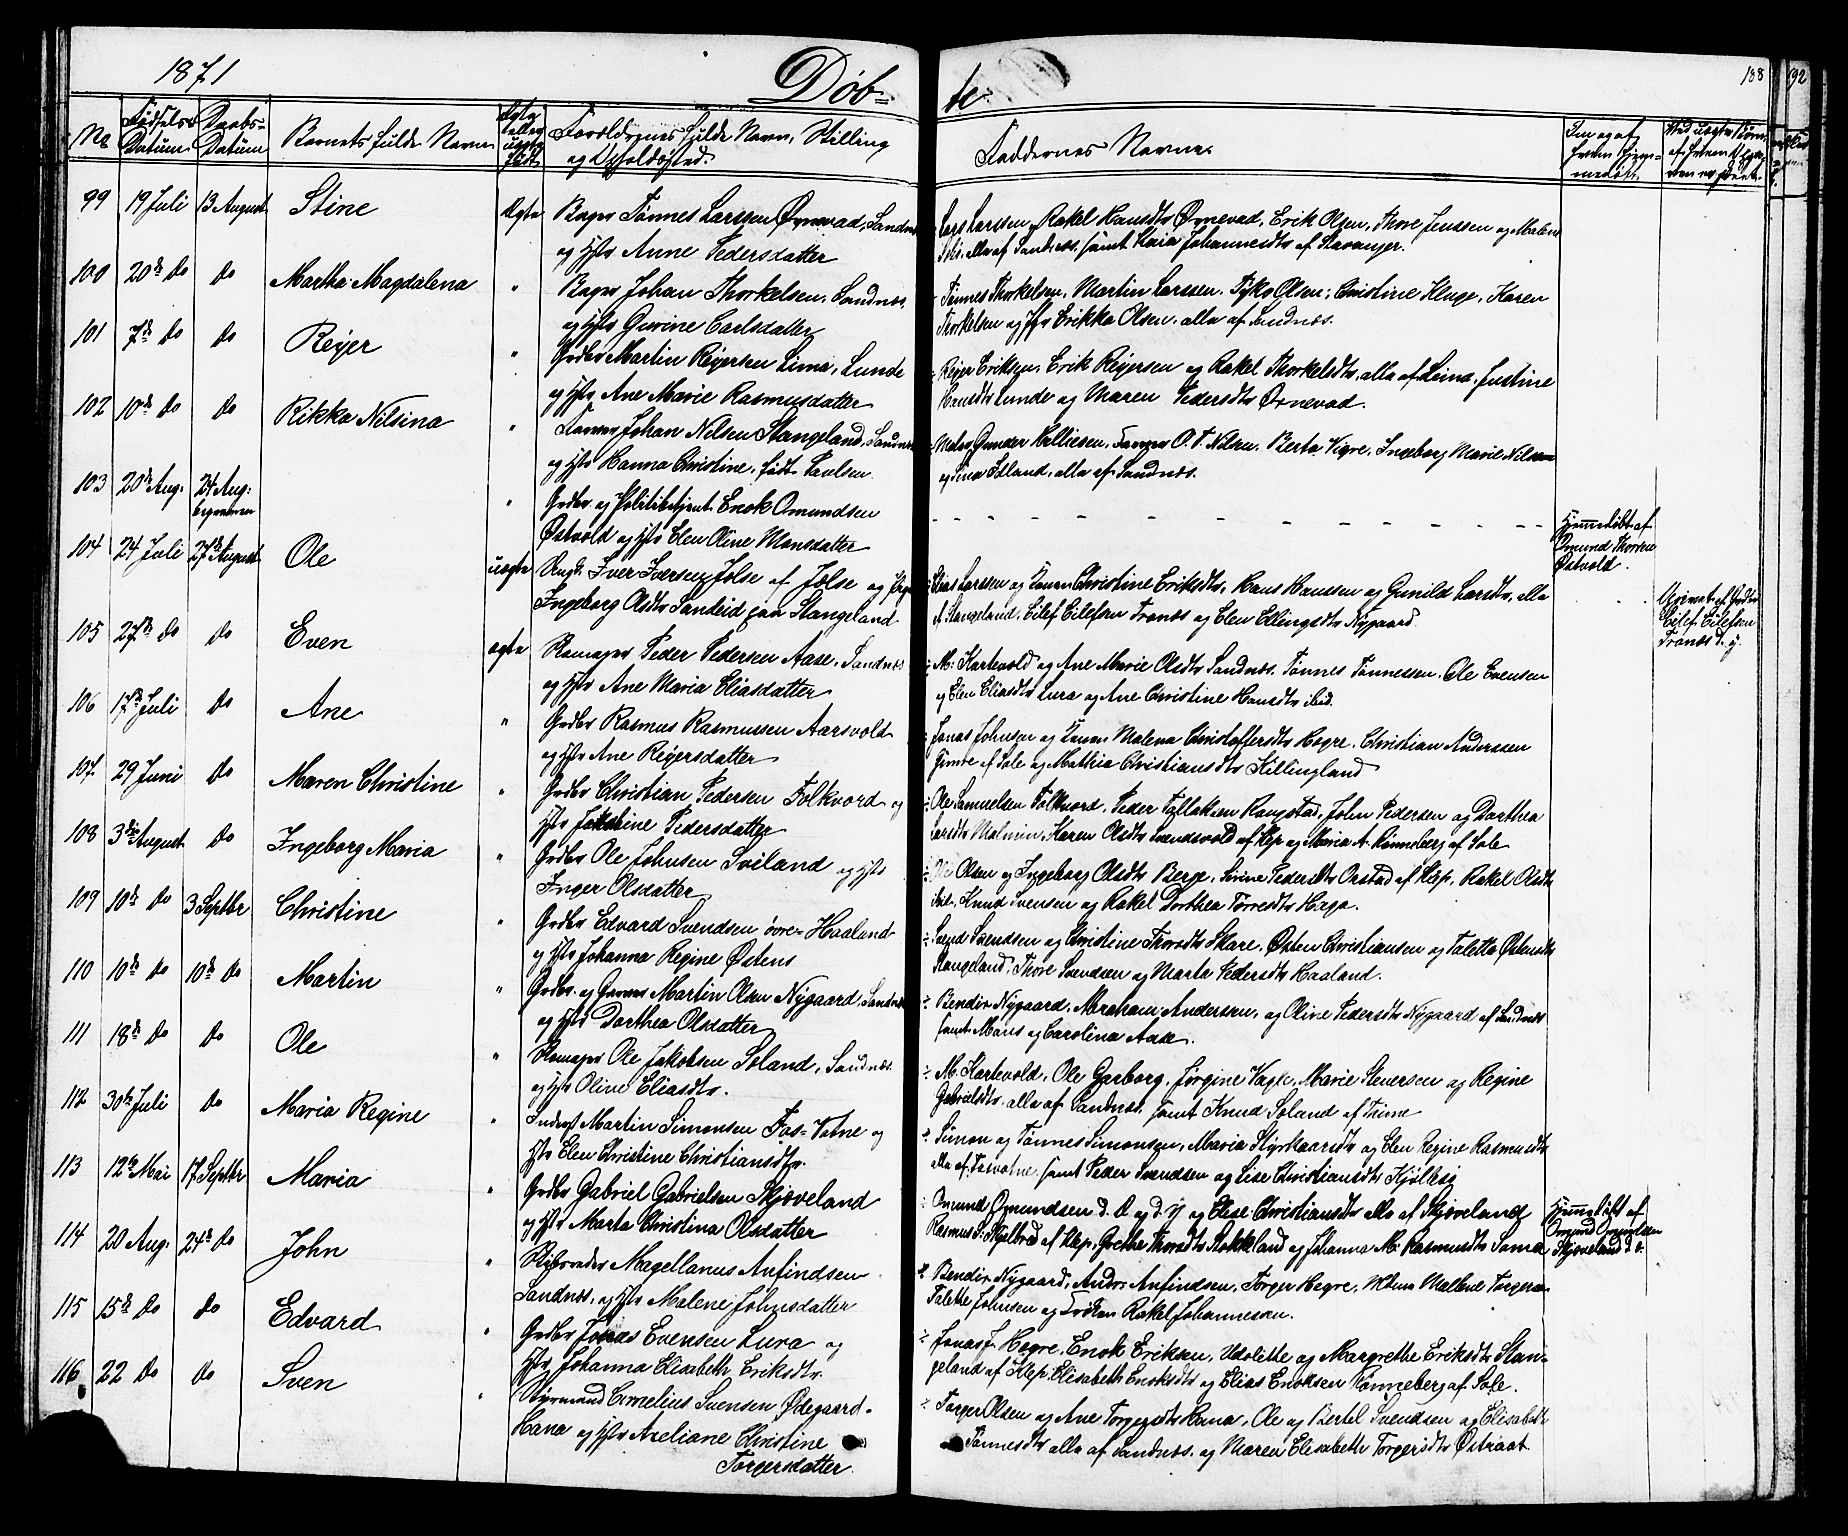 1871 Døb- te. 188 192
No Fødsels Datum Daabs- Datum Barnets fulde Navn Ægte eller uægte født Forældrenes fulde Navn, Stilling og Opholdssted. Faddernes Navne.
99 19 Juli 13 August Stine Ægte Bager Tønnes Larssen Ørnevad, Sandnes
og Hstr Anne Pedersdatter
Lars Larssen, Rakel Hansdtr Ørnevad, Erik Olsen, Thore Jenssen og Malene
alle af Sandnæs, samt Kaia Johannesdtr af Stavanger.
100 20de Do Do Martha Magdalena " Bager Johan Thorkelsen, Sandnæs.
og Hstr Gurine Carlsdatter
Tønnes Thorkelsen, Martin Larssen, Tyko Olsen, Christine Kluge, Karen
Thorkelsen og Erikka Olsen, alle af Sandnæs.
101 7de Do Do Reijer " Grdbr Martin Reijersen Lima, Lunde
og Hstr Ane Marie Rasmusdatter
Reijer Eriksen, Erik Reijersen og Rakel Thorkelsdtr, alle af Lima, Justine
Hansdtr Lunde og Maren Pedersdtr Ørnevad.
102 10de Do Do Rikka Nilsina " Farver Johan Nilsen Stangeland, Sandnæs
og Hstr Hanna Christine, født Paulsen
Gunder Helliesen, Farver O. T. Nilsen, Berta Vigre, Ingeborg Marie Nilsen
alle af Sandnæs.
103 20de Aug. 24 Aug: begraven " Grdbr og Politibetjent Enok Omundsen
Østvold og Hstr Elen Oline Monsdatter
Hjemmedøbt af
Omund Thorsen
Østvold.
104 24 Juli 27de August Ole uægte Ungk. Iver Iversen Jølse af Jølse og Pige
Ingeborg Olsdtr Sandeid paa Stangeland
Larssen og Christine Eriksdtr, Hans Hansen og Gunild Larsdtr, alle
af Stangeland, Eilef Eilefsen Tronæs og Elen Ellingsdtr Nygaard.
Eilef Eilefsen
Tronæs d. y.
105 27de Do Do Even ægte Peder Pedersen Aase, Sandnæs
og Hstr Ane Maria Eliasdatter
M. Kartevold og Ane Marie Olsdtr Sandnæs, Tønnes Tønnessen, Ole Evensen
og Elen Eliasdtr Lura og Ane Christine Hansdtr ibid.
106 17de Juli Do Ane " Grdbr Rasmus Rasmussen Aarsvold
og Hstr Ane Reijersdatter
Jonas Johnsen og Malena Christoffersdtr Hogre, Christian Andersen
Gimre af Sole og Mathia Christiansdtr Killingland
107 29 Juni Do Maren Christine " Grdbr Christian Pedersen Folkvord og
Hstr Jakobine Pedersdatter
Ole Samuelsen Folkvord, Peder Tollaksen Rangstad, John Pedersen og Dorthea
Larsdtr Malmin, Karen Olsdtr Svendsvold af Klep og Maria A. Rønneberg af Sole
108 3die August Do Ingeborg Maria " Grdbr Ole Johnsen Sviland og Hstr
Inger Olsdatter
Ole Olsen og Ingeborg Olsdtr Berge, Serine Pedersdtr Orstad af Klep, Rakel Olsdtr
ibid. Knud Svensen og Rakel Dorthea Torresdtr Haga.
109 10de Do 3 Septbr Christine " Grdbr Edvard Svendsen øvre- Haaland
og Hstr Johanna Regine Østens
Svend Svendsen og Christine Thoresdtr Skare, Østen Christiansen og Taletta Østensdtr
Stangeland, Thore Svendsen og Marta Pedersdtr Haaland.
110 10de Do 10de Do Martin " Grdbr og Garver Martin Olsen Nygaard, Sandnæs
og Hstr Dorthea Olsdatter
Bendix Nygaard, Abraham Andersen, og Oline Pedersdtr Nygaard af Sandnæs
samt Mons og Carolina Aase.
111 18de Do Do Ole " Ole Jakobsen Soland, Sandnæs
og Hstr Oline Eliasdtr.
M. Kartevold, Ole Garborg, Jørgine Vagle, Marie Stenersen og Regine
Gabrielsdtr, alle af Sandnæs, samt Knud Soland af Thime
112 30te Juli Do Maria Regine " Inderst Martin Simonsen Fos- Vatne og
Hstr Elen Christine Christiansdtr.
Simon og Tønnes Simonsen, Maria Styrkaarsdtr og Elen Regine Rasmusdtr
alle af Fosvatne, samt Peder Svendsen og Lise Christiansdtr Kjøllesig
113 12te Mai 17 Septbr Maria " Grdbr Gabriel Gabrielsen Skjæveland
og Hstr Marta Christina Olsdatter
Omund Omundsen d. æ. og d. y. og Elise Christiansdtr alle af Skjæveland
Rasmus S. Skjelbred af Klep, Grethe Thoresdtr Stokkland og Johanna M. Rasmusdtr Soma
Hjemmedøbt af
Omund Omundsen
Skjæveland d. æ.
114 20 Aug. 24de Do John " Skibsreder Magellanus Anfindsen
Sandnæs, og Hstr Malene Johnsdatter
Bendix Nygaard, Andr. Anfindsen, Torger Hegre, Malene Torgersen
Talette Johnsen og Frøken Rakel Johannesen.
115 15de Do Do Edvard " Grdbr Jonas Evensen Lura og
Hstr Johanna Elisabeth Eriksdtr.
Jonas J. Hogre, Enok Eriksen, Udolette og Margrethe Eriksdtr Stan-
geland af Klep, Elisabeth Enoksdtr og Elias Enoksen Rønneberg af Sole.
116 22 Do Do Sven " Styrmand Cornelius Svensen Ødegaard-
Hana og Hstr Axeliane Christine
Torgersdatter
Torger Olsen og Ane Torgersdtr Hana, Ole og Bertel Svendsen og Elisabeth
Tønnesdtr alle af Sandnæs, og Maren Elisabeth Torgersdtr Østraat